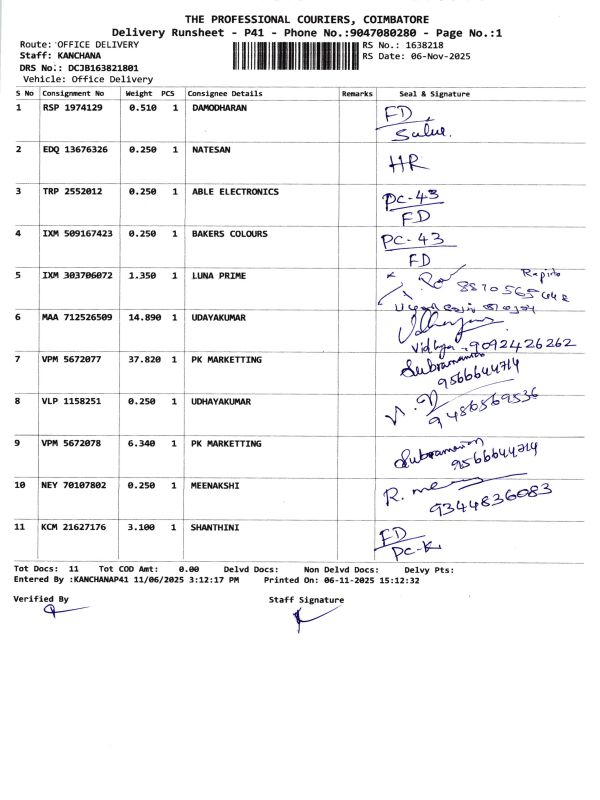 THE PROFESSIONAL COURIERS, COIMBATORE
Delivery Runsheet - P41 - Phone No.:9047080280 - Page No.:1
Route: OFFICE DELIVERY RS No.: 1638218
Staff: KANCHANA RS Date: 06-Nov-2025
DRS No.: DCJB163821801
Vehicle: Office Delivery
S No Consignment No Weight PCS Consignee Details Remarks Seal & Signature
1 RSP 1974129 0.510 1 DAMODHARAN FD
2 EDQ 13676326 0.250 1 NATESAN HR
3 TRP 2552012 0.250 1 ABLE ELECTRONICS PC-43
FD
4 IXM 509167423 0.250 1 BAKERS COLOURS PC-43
FD
5 IXM 303706072 1.350 1 LUNA PRIME Rapido
6 MAA 712526509 14.890 1 UDAYAKUMAR
Vidhya - 9092426262
7 VPM 5672077 37.820 1 PK MARKETTING Subramanian
9566644714
8 VLP 1158251 0.250 1 UDHAYAKUMAR
9486569536
9 VPM 5672078 6.340 1 PK MARKETTING Subramanian
9566644714
10 NEY 70107802 0.250 1 MEENAKSHI
9344836083
11 KCM 21627176 3.100 1 SHANTHINI FD
PC-K
Tot Docs: 11 Tot COD Amt: 0.00 Delvd Docs: Non Delvd Docs: Delvy Pts:
Entered By :KANCHANAP41 11/06/2025 3:12:17 PM Printed On: 06-11-2025 15:12:32
Verified By Staff Signature